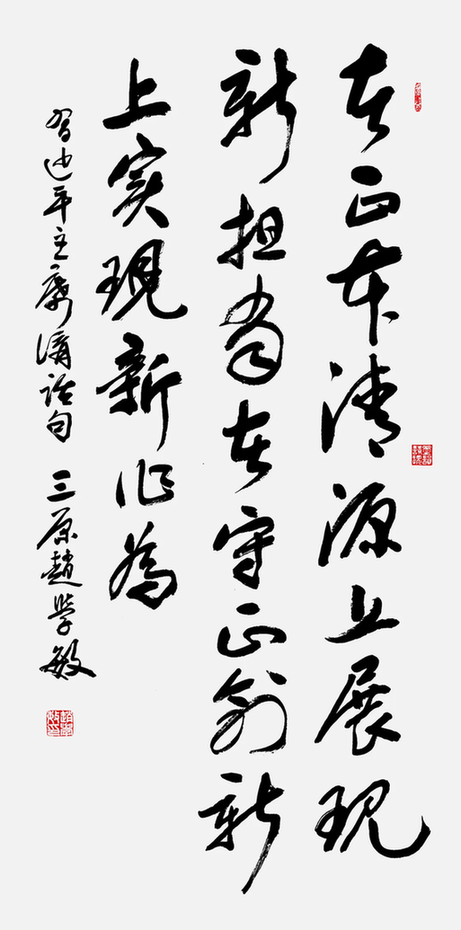 在正本清源上展现
新担当在守正创新
上实現新作為
習近平主席講话句 三原趙学敏